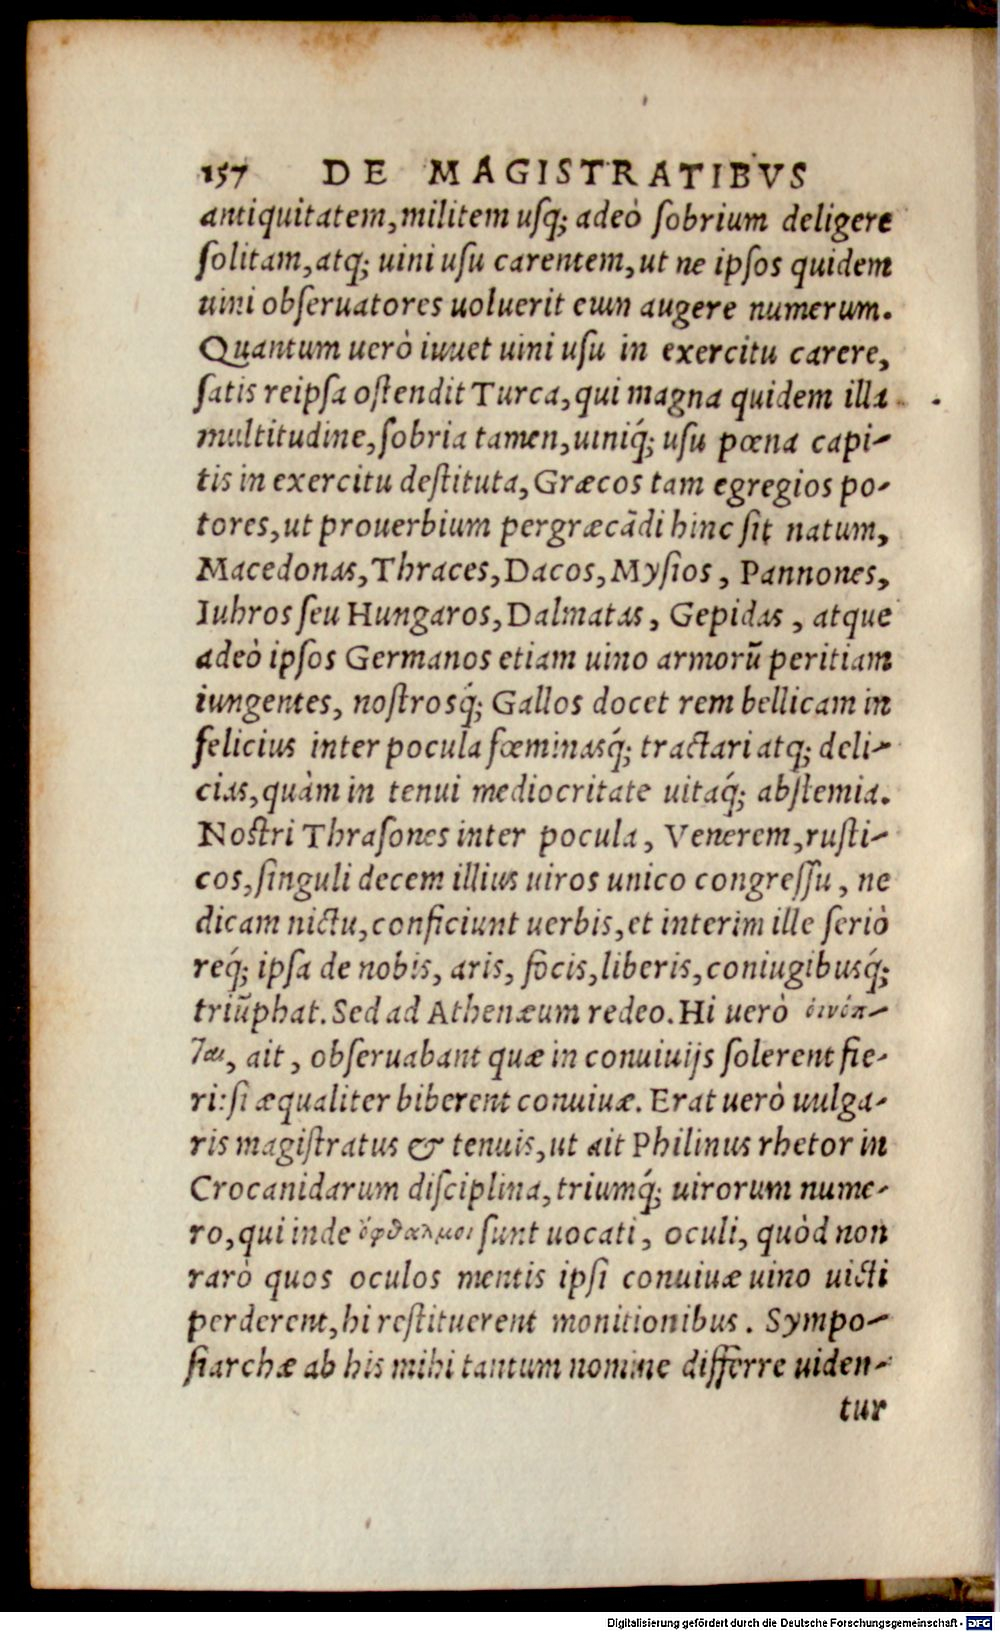 157 DE MAGISTRATIBVS
antiquitatem, militem usq; adeò ſobrium deligere
ſolitam, atq; uini uſu carentem, ut ne ipſos quidem
uini obſeruatores uoluerit eum augere numerum.
Quantum uerò iuuet uini uſu in exercitu carere,
ſatis reipſa oſtendit Turca, qui magna quidem illa
multitudine, ſobria tamen, uiniq́; uſu pœna capi-
tis in exercitu deſtituta, Græcos tam egregios po-
tores, ut prouerbium pergræcādi hinc ſit natum,
Macedonas, Thraces, Dacos, Myſios, Pannones,
Iuhros ſeu Hungaros, Dalmatas, Gepidas, atque
adeò ipſos Germanos etiam uino armorū peritiam
iungentes, noſtrosq́; Gallos docet rem bellicam in
felicius inter pocula fœminasq́; tractari atq; deli-
cias, quàm in tenui mediocritate uitaq́; abſtemia.
Noſtri Thraſones inter pocula, Venerem, ruſti-
cos, ſinguli decem illius uiros unico congreſſu, ne
dicam nictu, conficiunt uerbis, et interim ille ſeriò
req́; ipſa de nobis, aris, focis, liberis, coniugibusq́;
triūphat. Sed ad Athenæum redeo. Hi uerò ὀινόπ-
ται, ait, obſeruabant quæ in conuiuijs ſolerent fie-
ri: ſi æqualiter biberent conuiuæ. Erat uerò uulga-
ris magiſtratus & tenuis, ut ait Philinus rhetor in
Crocanidarum diſciplina, triumq́; uirorum nume-
ro, qui inde ὀφθαλμοι ſunt uocati, oculi, quòd non
rarò quos oculos mentis ipſi conuiuæ uino uicti
perderent, hi reſtituerent monitionibus. Sympo-
ſiarchæ ab his mihi tantum nomine differre uiden-
tur
Digitalisierung gefördert durch die Deutsche Forschungsgemeinschaft - DFG